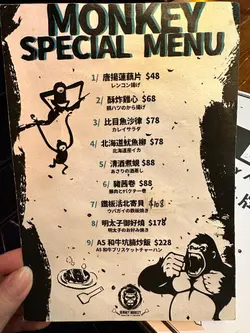 MONKEY
SPECIAL MENU
1/ 唐揚蓮藕片 $48
レンコン揚げ
2/ 酥炸雞心 $68
鶏ハツのから揚げ
3/ 比目魚沙律 $78
カレイサラダ
4/ 北海道魷魚柳 $78
北海道産イカ
5/ 清酒煮蜆 $88
あさりの酒蒸し
6/ 豬茜卷 $88
豚肉とパクチー巻
7/ 鐵板活北寄貝 $168
ウバガイの鉄板焼き
8/ 明太子御好燒 $178
明太子のお好み焼き
9/ A5 和牛坑腩炒飯 $228
A5 和牛ブリスケットチャーハン